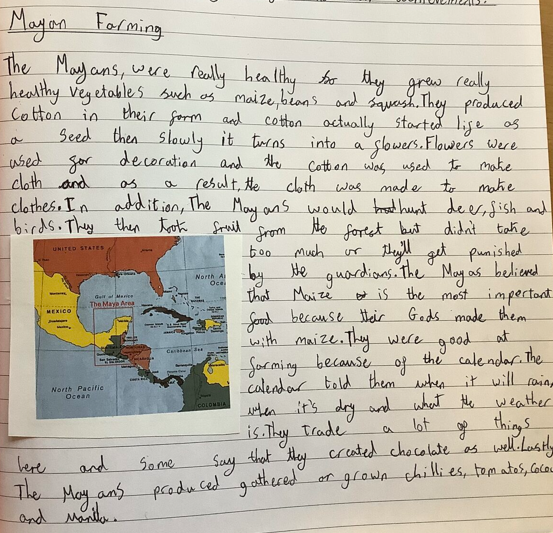 Mayan Farming
The Mayans, were really healthy so they grew really
healthy vegetables such as maize, beans and squash. They produced
cotton in their farm and cotton actually started life as
a seed then slowly it turns into a flowers. Flowers were
used for decoration and the cotton was used to make
cloth and as a result, the cloth was made to make
clothes. In addition, The Mayans would hunt deer, fish and
birds. They then took fruit from the forest but didn't take
too much or they'll get punished
by the guardians. The Mayas believed
that Maize is the most important
food because their Gods made them
with maize. They were good at
farming because of the calendar. The
calendar told them when it will rain,
when it's dry and what the weather
is. They trade a lot of things
here and some say that they created chocolate as well. Lastly
The Mayans produced gathered or grown chillies, tomatos, cocoa
and Vanilla.
UNITED STATES
Gulf of Mexico
The Maya Area
MEXICO
Caribbean Sea
North Pacific
Ocean
COLOMBIA